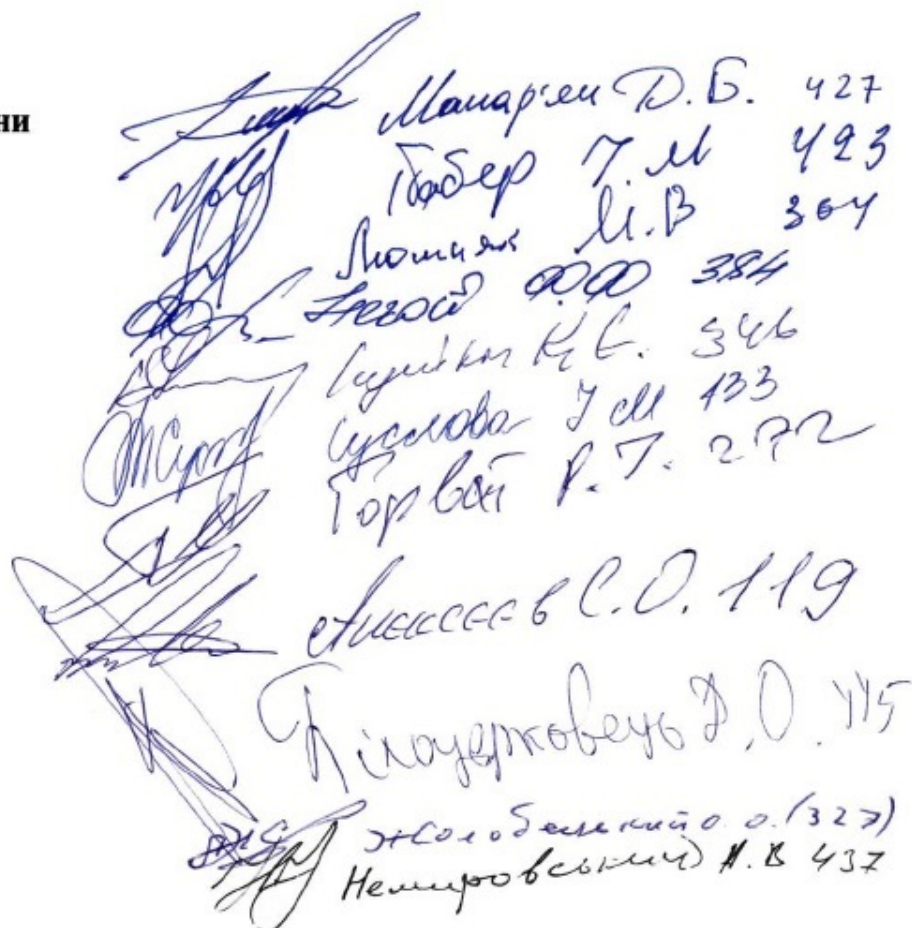 ни
Мамар'ян Д.Б. 427
Бабер І.М 423
Люшняк М.В 364
Негой Ф.Ф 384
К.Є. 346
Суслова І М 133
Горват Р.І. 272
Алєксєєв С.О. 119
Білоцерковець Д.О. 115
Жолобецький О.О. (327)
Немировський А.В 437